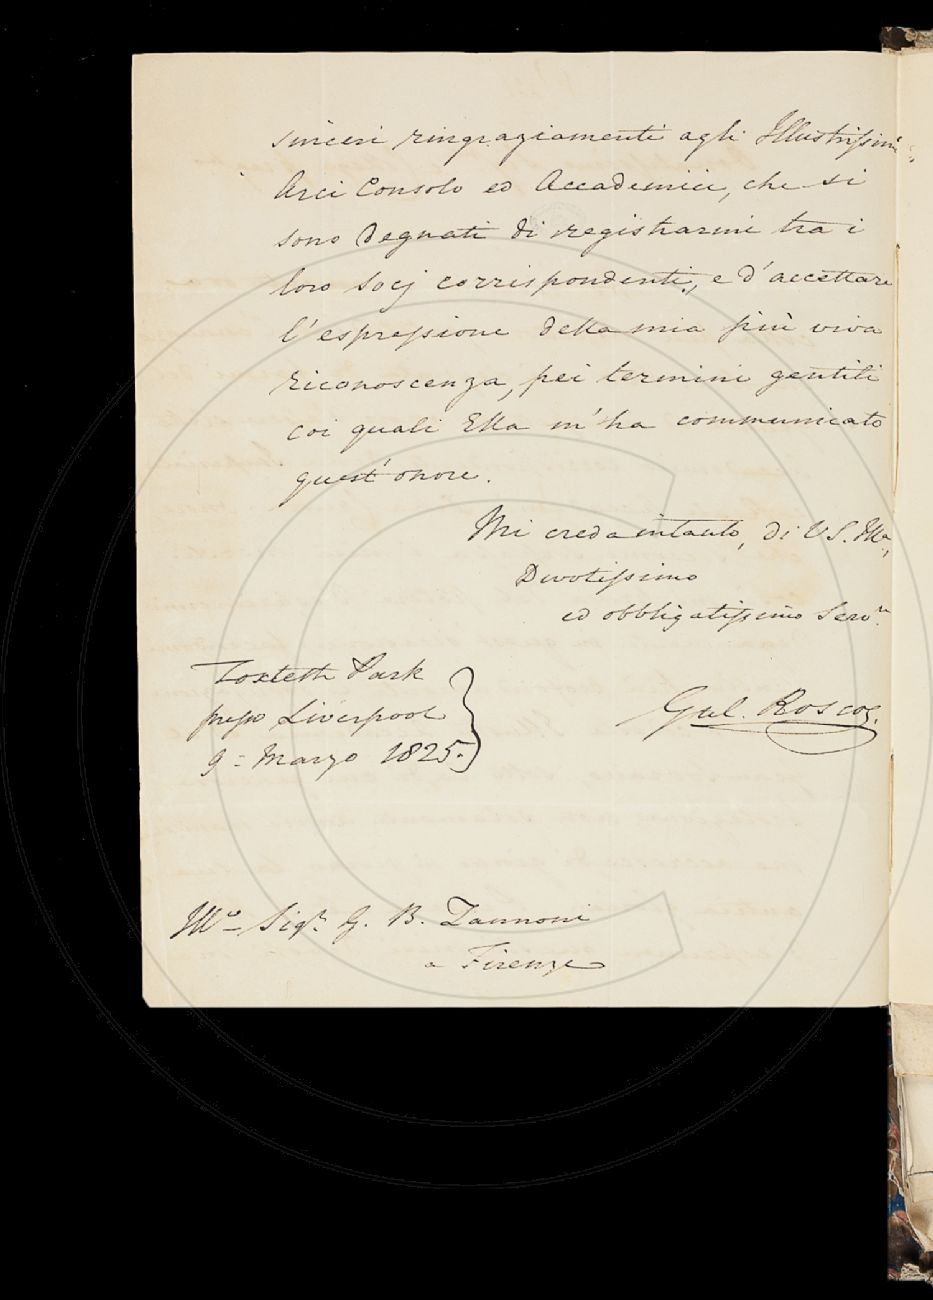 sinceri ringraziamenti agli Illustrissimi
Arci Consolo ed Accademici, che si
sono degnati di registrarmi tra i
loro socj corrispondenti, e d'accettare
l'espressione della mia più viva
riconoscenza, pei termini gentili
coi quali Ella m'ha communicato
quest'onore.
Mi creda intanto, di V S. Illa,
Divotissimo
ed obbligatissimo Servre
Toxteth Park
presso Liverpool
9 = Marzo 1825.
Gul. Roscoe.
Illo Sigr G. B. Zannoni
a Firenze